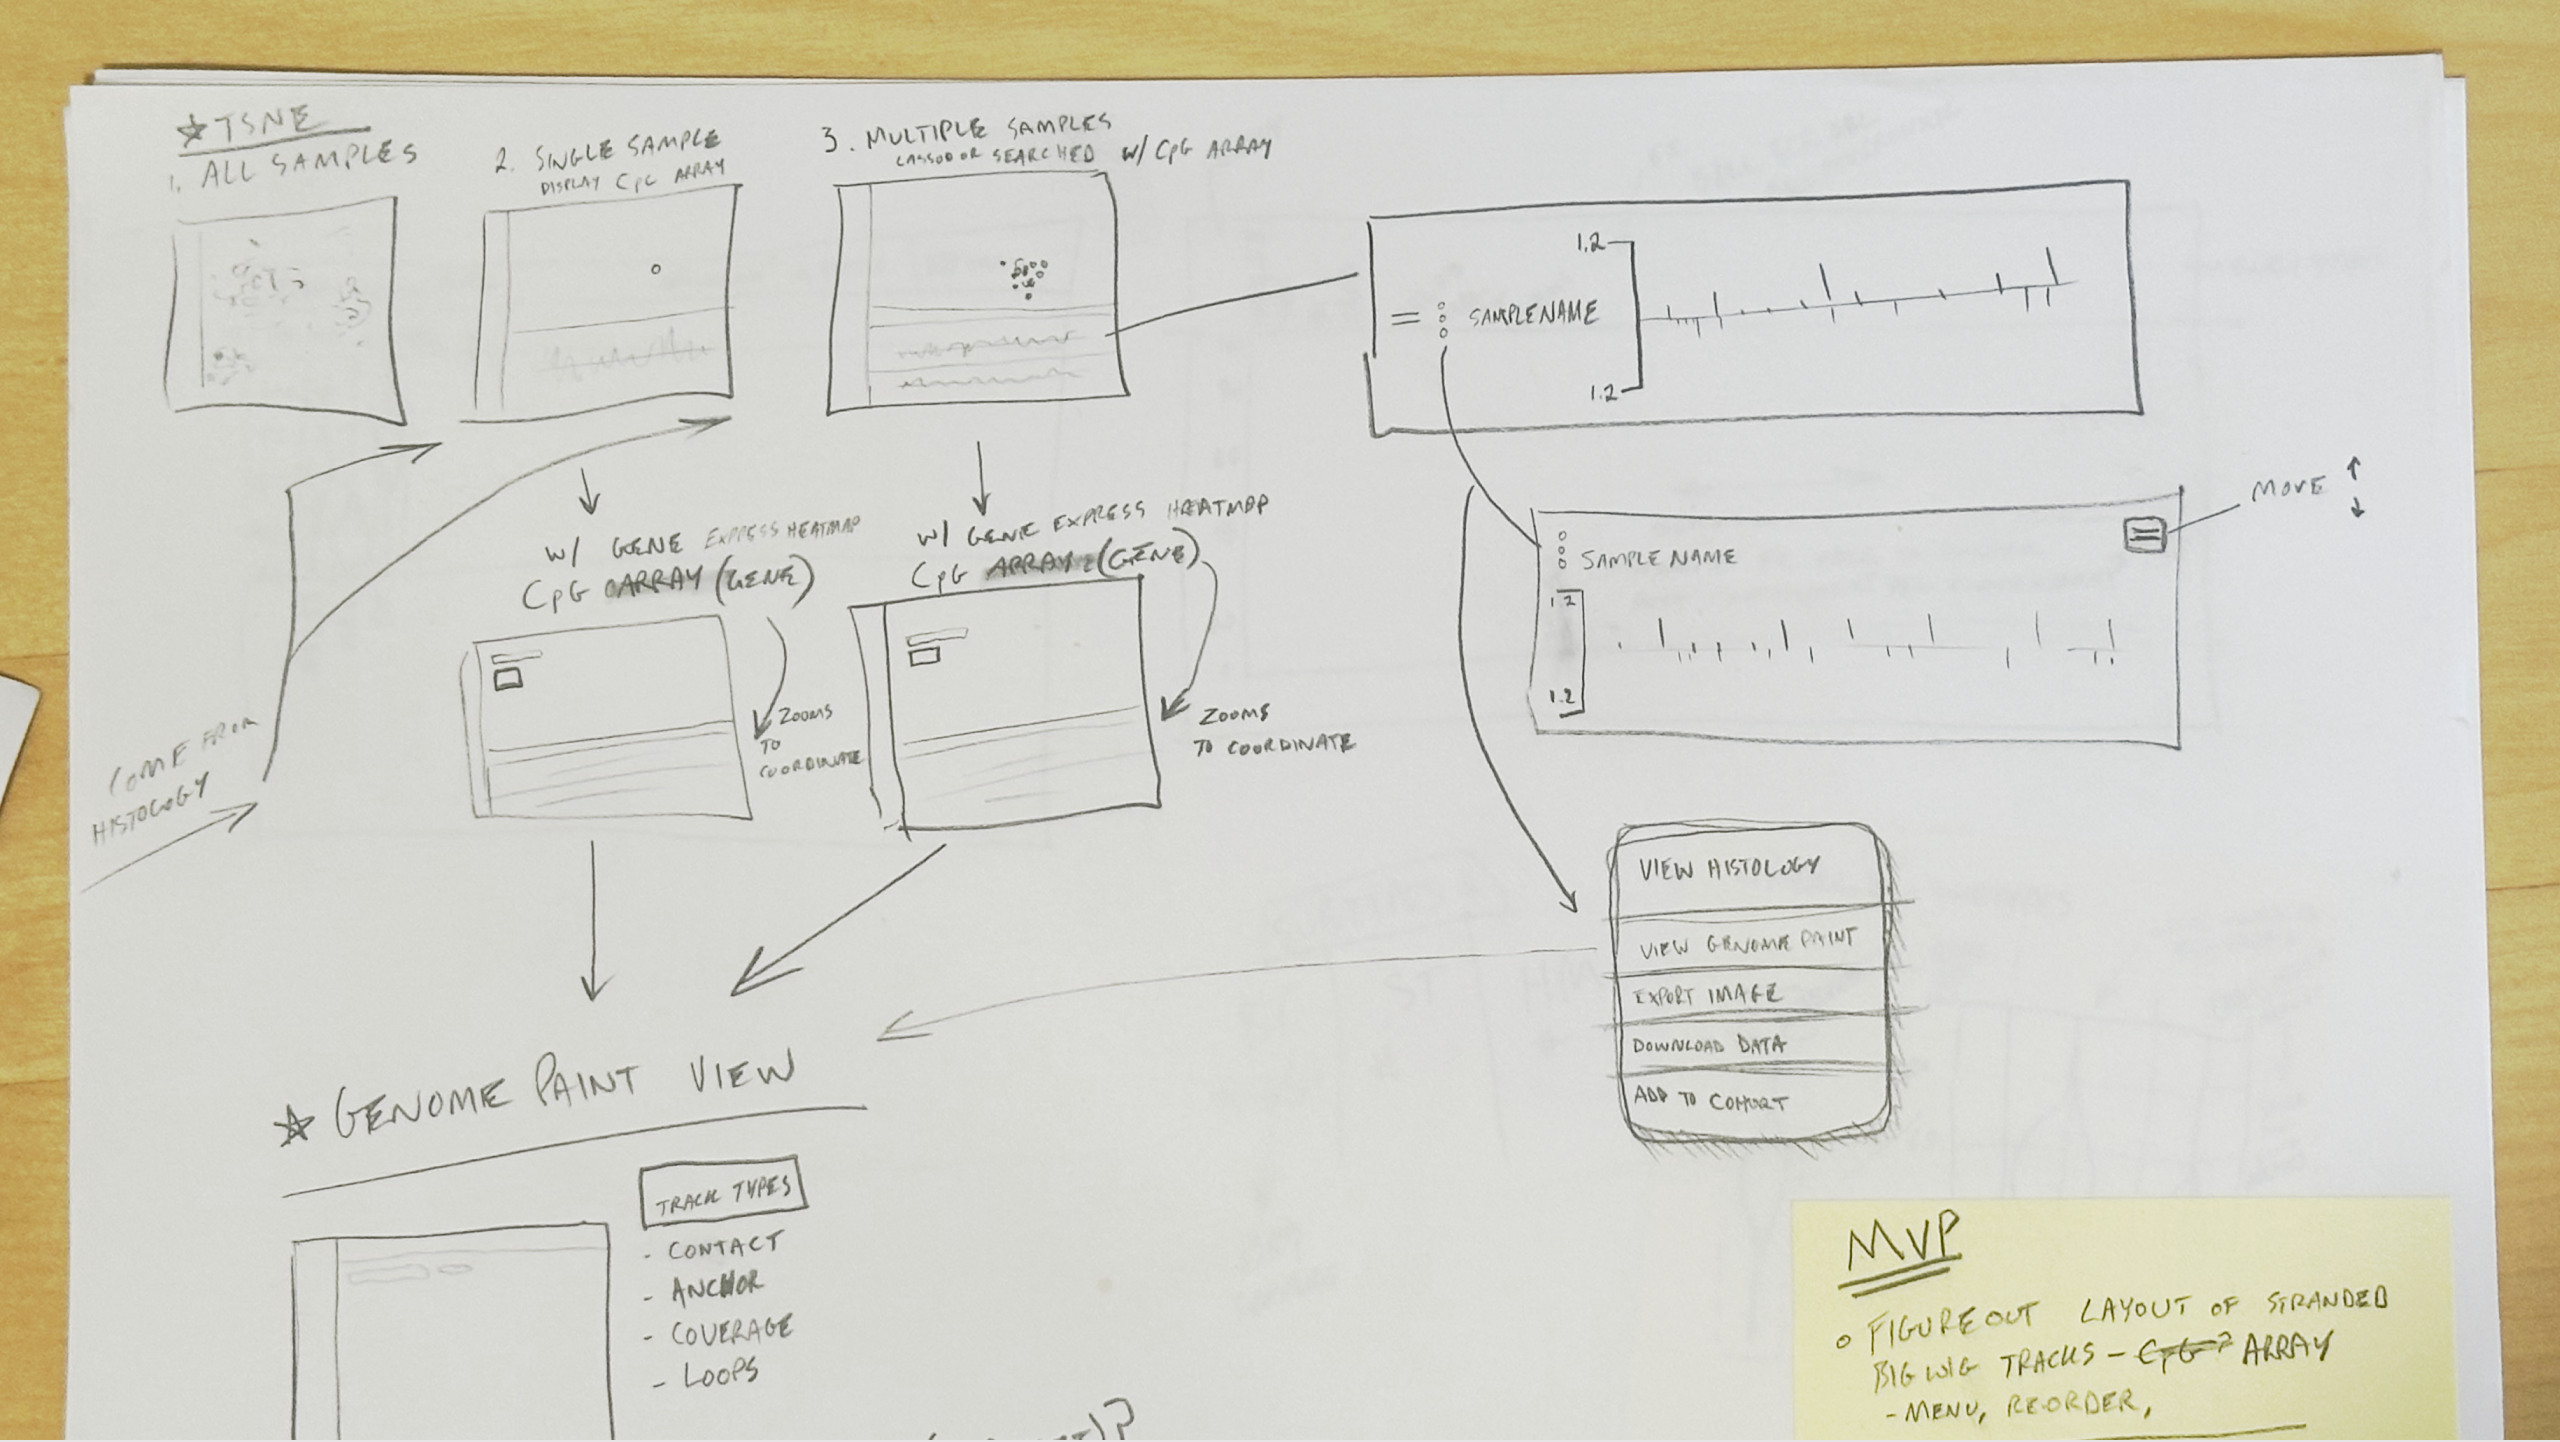 ☆ TSNE
1. ALL SAMPLES
2. SINGLE SAMPLE
DISPLAY CpG ARRAY
3. MULTIPLE SAMPLES
LASSOD OR SEARCHED W/ CpG ARRAY
1.2
SAMPLE NAME
1.2
MOVE ↑
↓
SAMPLE NAME
1.2
1.2
W/ GENE EXPRESS HEATMAP
CpG ARRAY (GENE)
ZOOMS
TO
COORDINATE
W/ GENE EXPRESS HEATMAP
CpG ARRAY (GENE)
ZOOMS
TO COORDINATE
COME FROM
HISTOLOGY
VIEW HISTOLOGY
VIEW GENOME PAINT
EXPORT IMAGE
DOWNLOAD DATA
ADD TO COHORT
☆ GENOME PAINT VIEW
TRACK TYPES
- CONTACT
- ANCHOR
- COVERAGE
- LOOPS
MVP
o FIGURE OUT LAYOUT OF STRANDED
BIG WIG TRACKS - CpG? ARRAY
- MENU, REORDER,